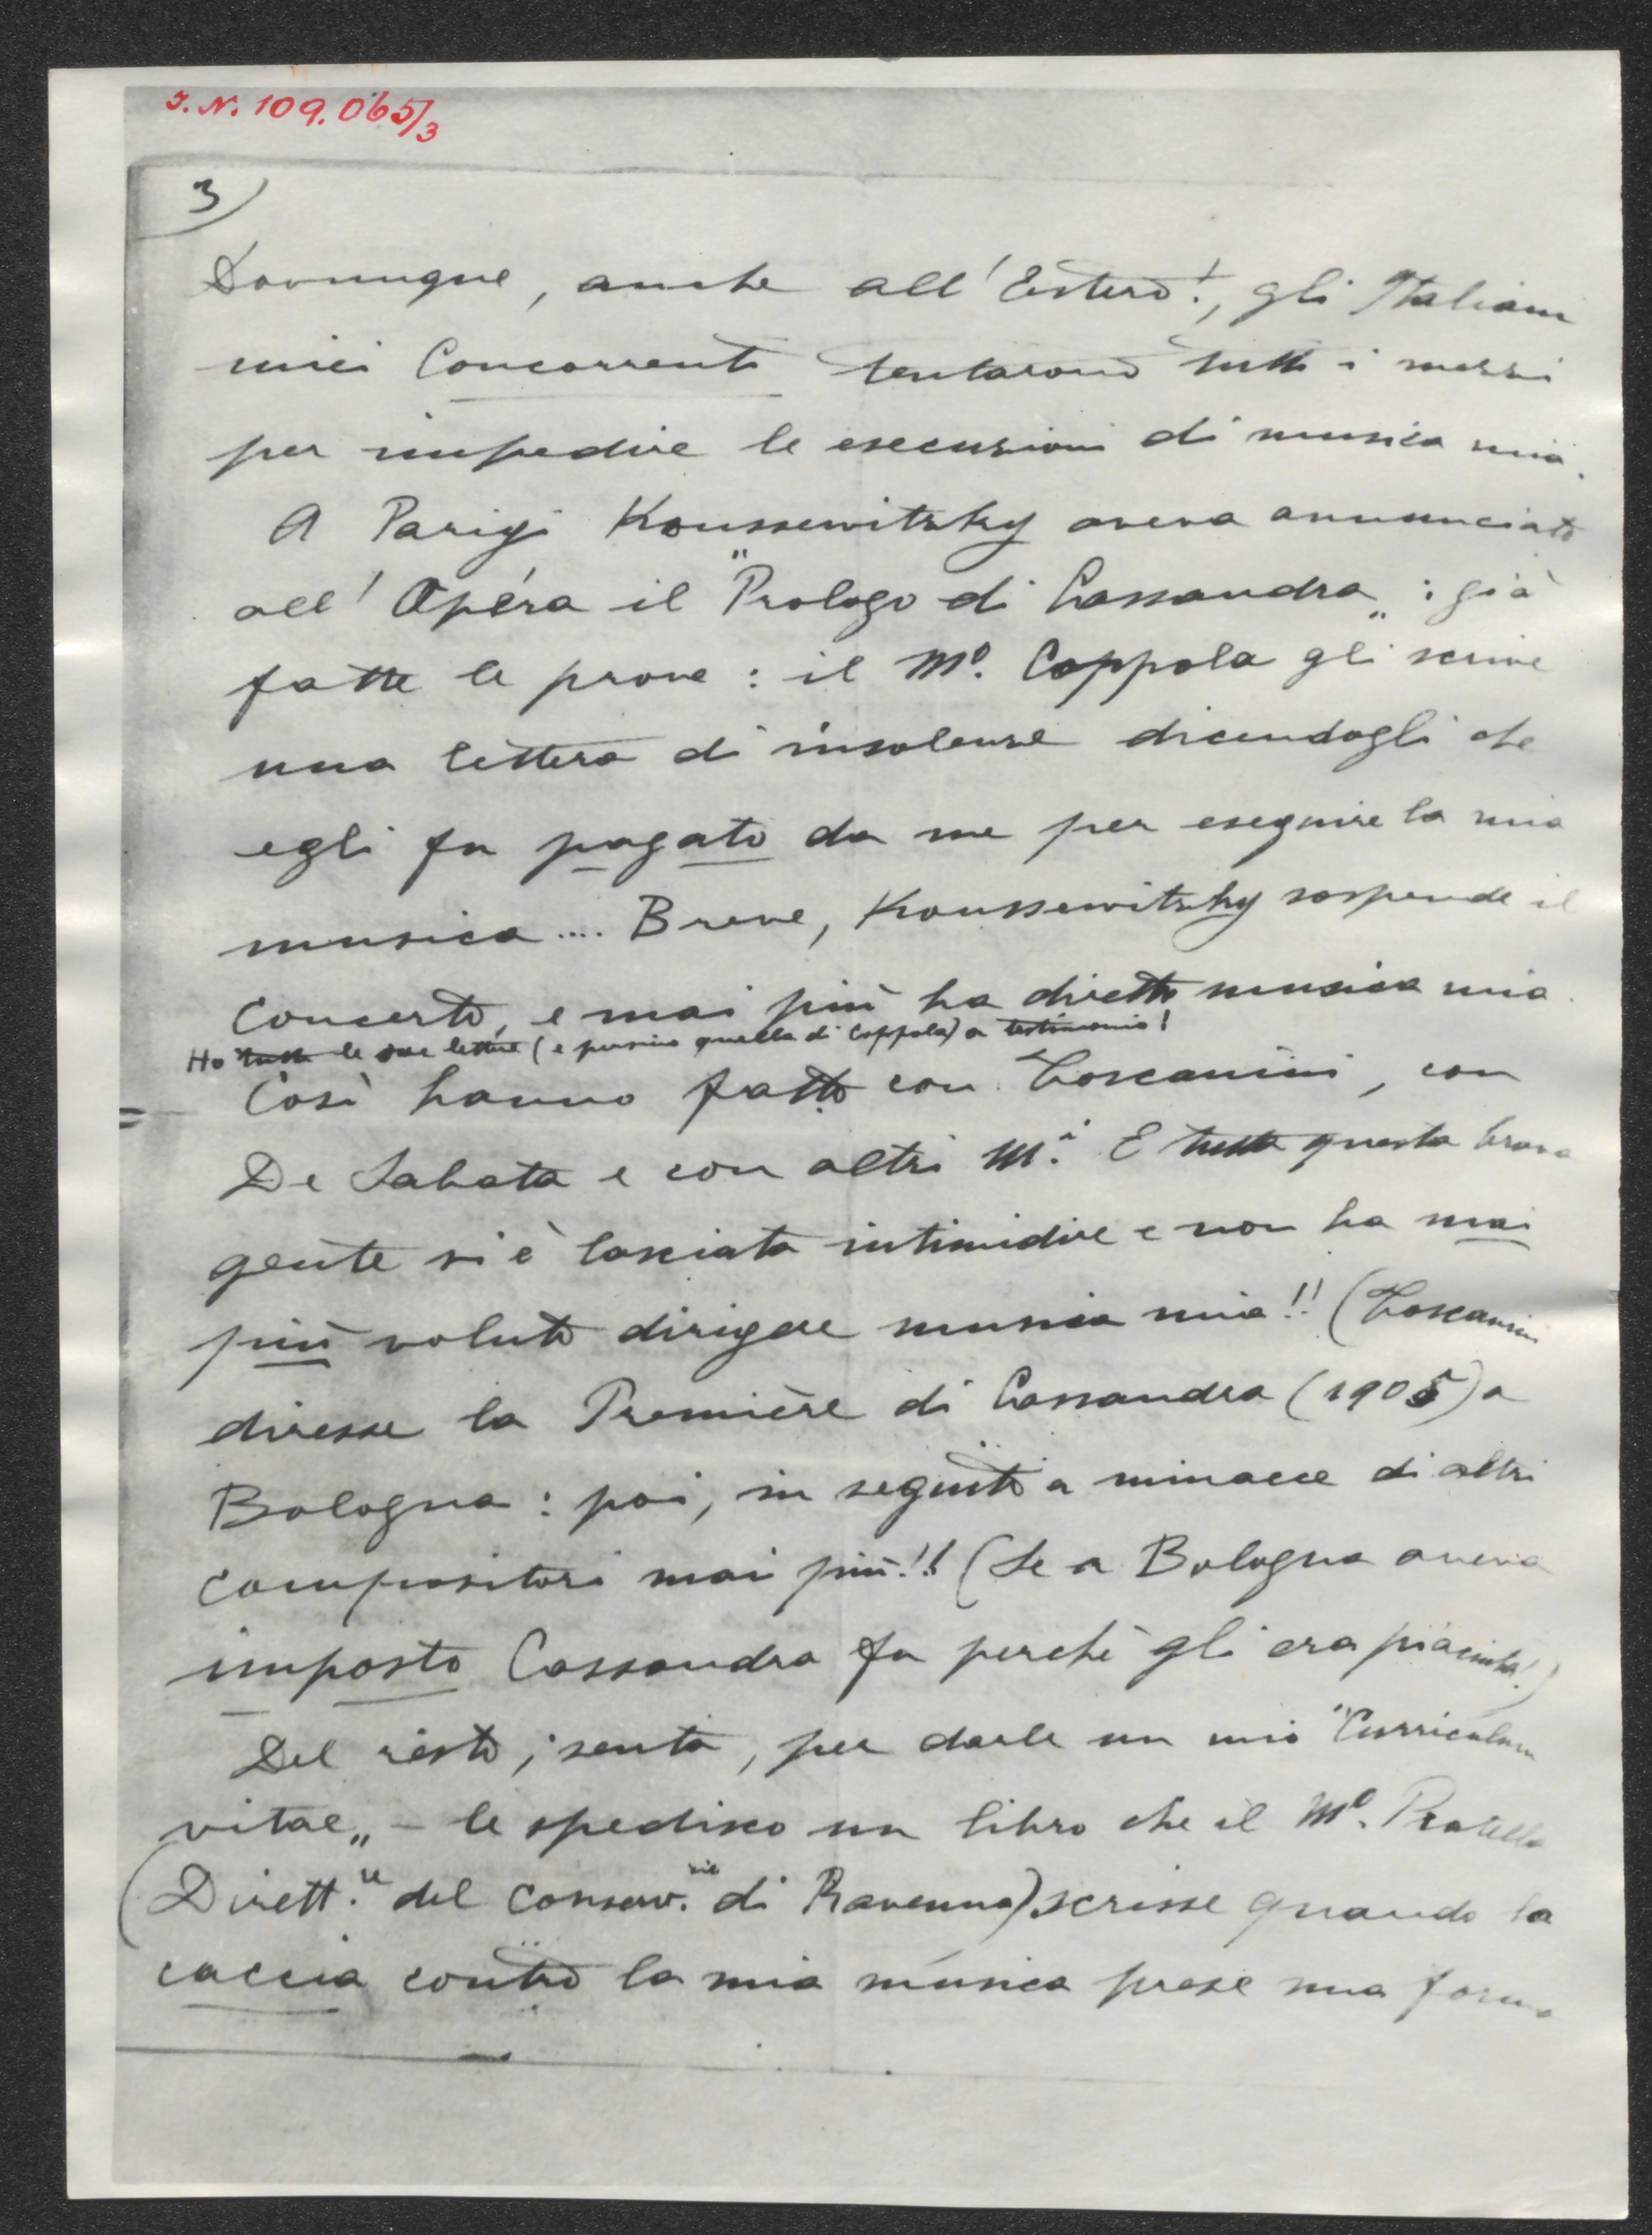 J.N. 109.065/3
3)
Dovunque, anche all'Estero!, gli Italiani
miei Concorrenti tentarono tutti i mezzi
per impedire le esecuzioni di musica mia.
A Parigi Koussewitzky aveva annunciato
all'Opéra il "Prologo di Cassandra„ : già
fatte le prove : il Mº. Coppola gli scrive
una lettera di insolenze dicendogli che
egli fu pagato da me per eseguire la mia
musica .... Breve, Koussewitzky sospende il
Concerto, e mai più ha diretto musica mia.
Ho tutte le sue lettere (e persino quella di Coppola) a testimonio!
Così hanno fatto con Toscanini, con
De Sabata e con altri M.i E tutta questa brava
gente si è lasciata intimidire e non ha mai
più voluto dirigere musica mia!! (Toscanini
diresse la Première di Cassandra (1905) a
Bologna : poi, in seguito a minacce di altri
compositori mai più!! (Se a Bologna aveva
imposto Cassandra fu perchè gli era piaciuta!)
Del resto, senta, per darle un mio "Curriculum
vitae„ - le spedisco un libro che il Mº. Pratella
(Dirett.re del Conserv.rio di Ravenna) scrisse quando la
caccia contro la mia musica prese una forma